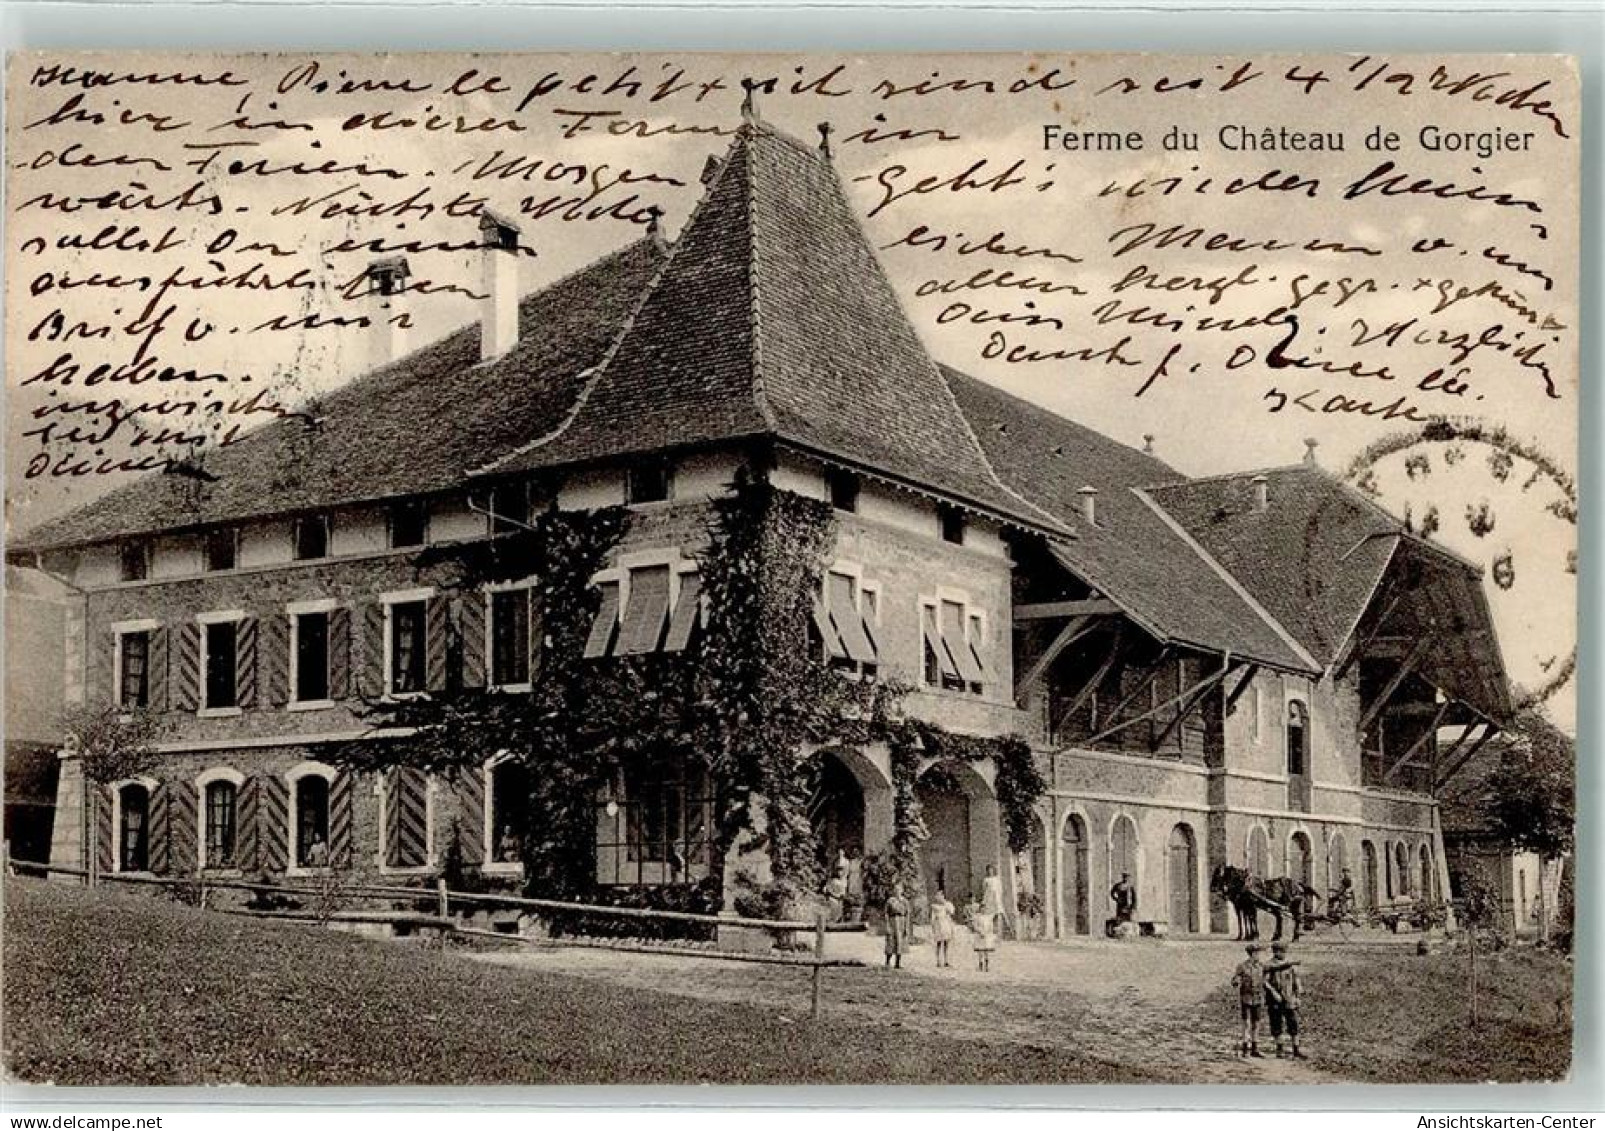 Ferme du Château de Gorgier
Pierre le petit + ich sind seit 4 1/2 Wochen
hier in dieser Ferme in
den Ferien. Morgen geht's wieder heim
wärts. Nächste Woche
sollst Du einen lieben Mann v. uns
ausführlichen allen herzl. gegr. + geküsst
Brief v. mir
haben. Dein Herzlichen
inzwischen Dank f. Deine lb.
sei mit Karte
Deinem
Ansichtskarten-Center